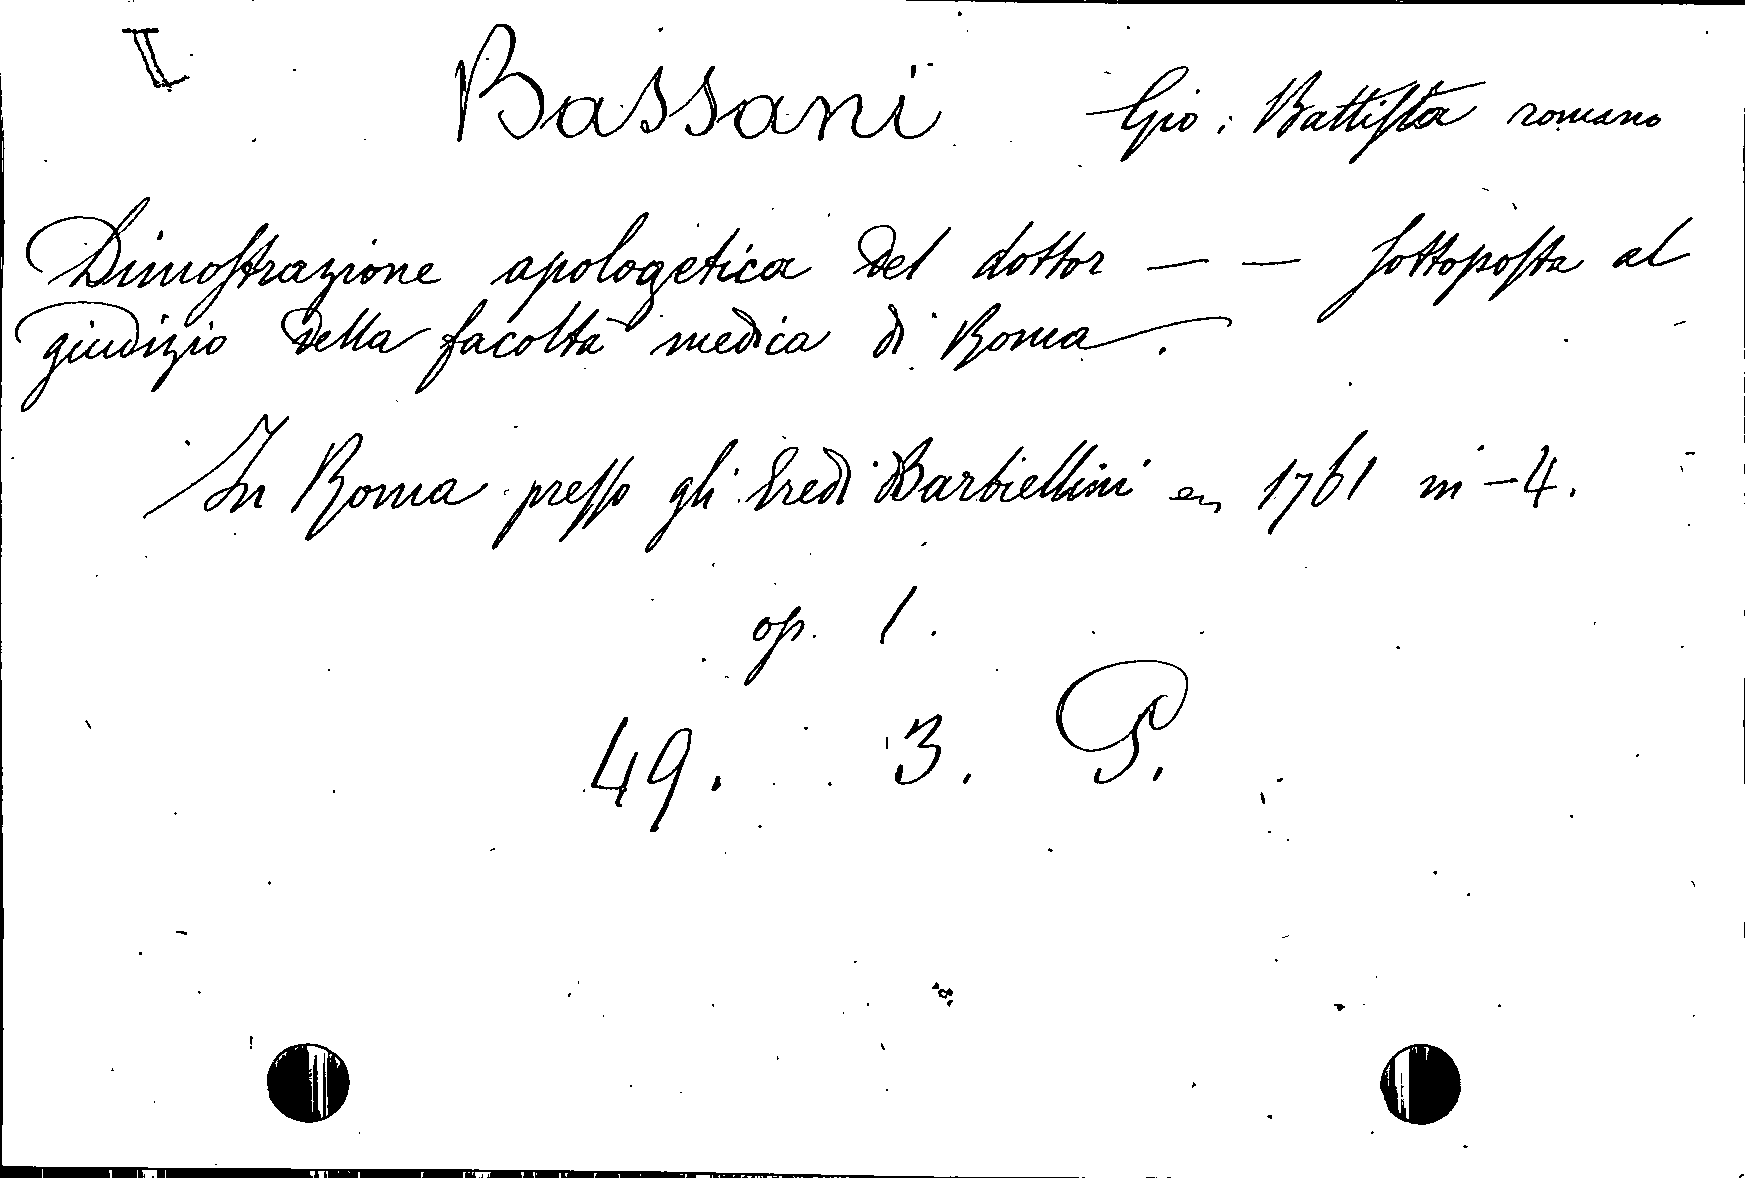 Bassani Gio: Battista romano
Dimostrazione apologetica del dottor — — sottoposta al
giudizio della facoltà medica di Roma.
In Roma presso gli Eredi Barbiellini 1761 in-4.
op. 1.
49. 3. P.